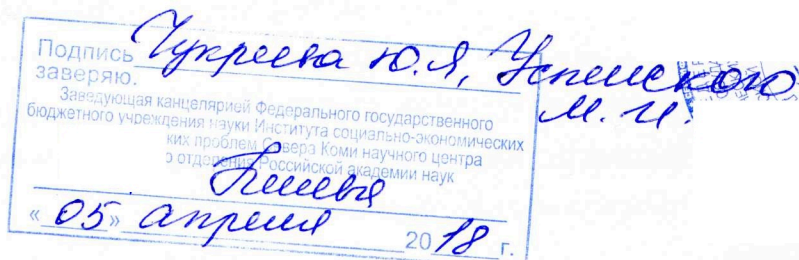 Подпись Чукреева Ю.Я, Успенского
М. И.
заверяю.
Заведующая канцелярией Федерального государственного
бюджетного учреждения науки Института социально-экономических
ких проблем Севера Коми научного центра
отделения Российской академии наук
« 05 » апреля 2018 г.